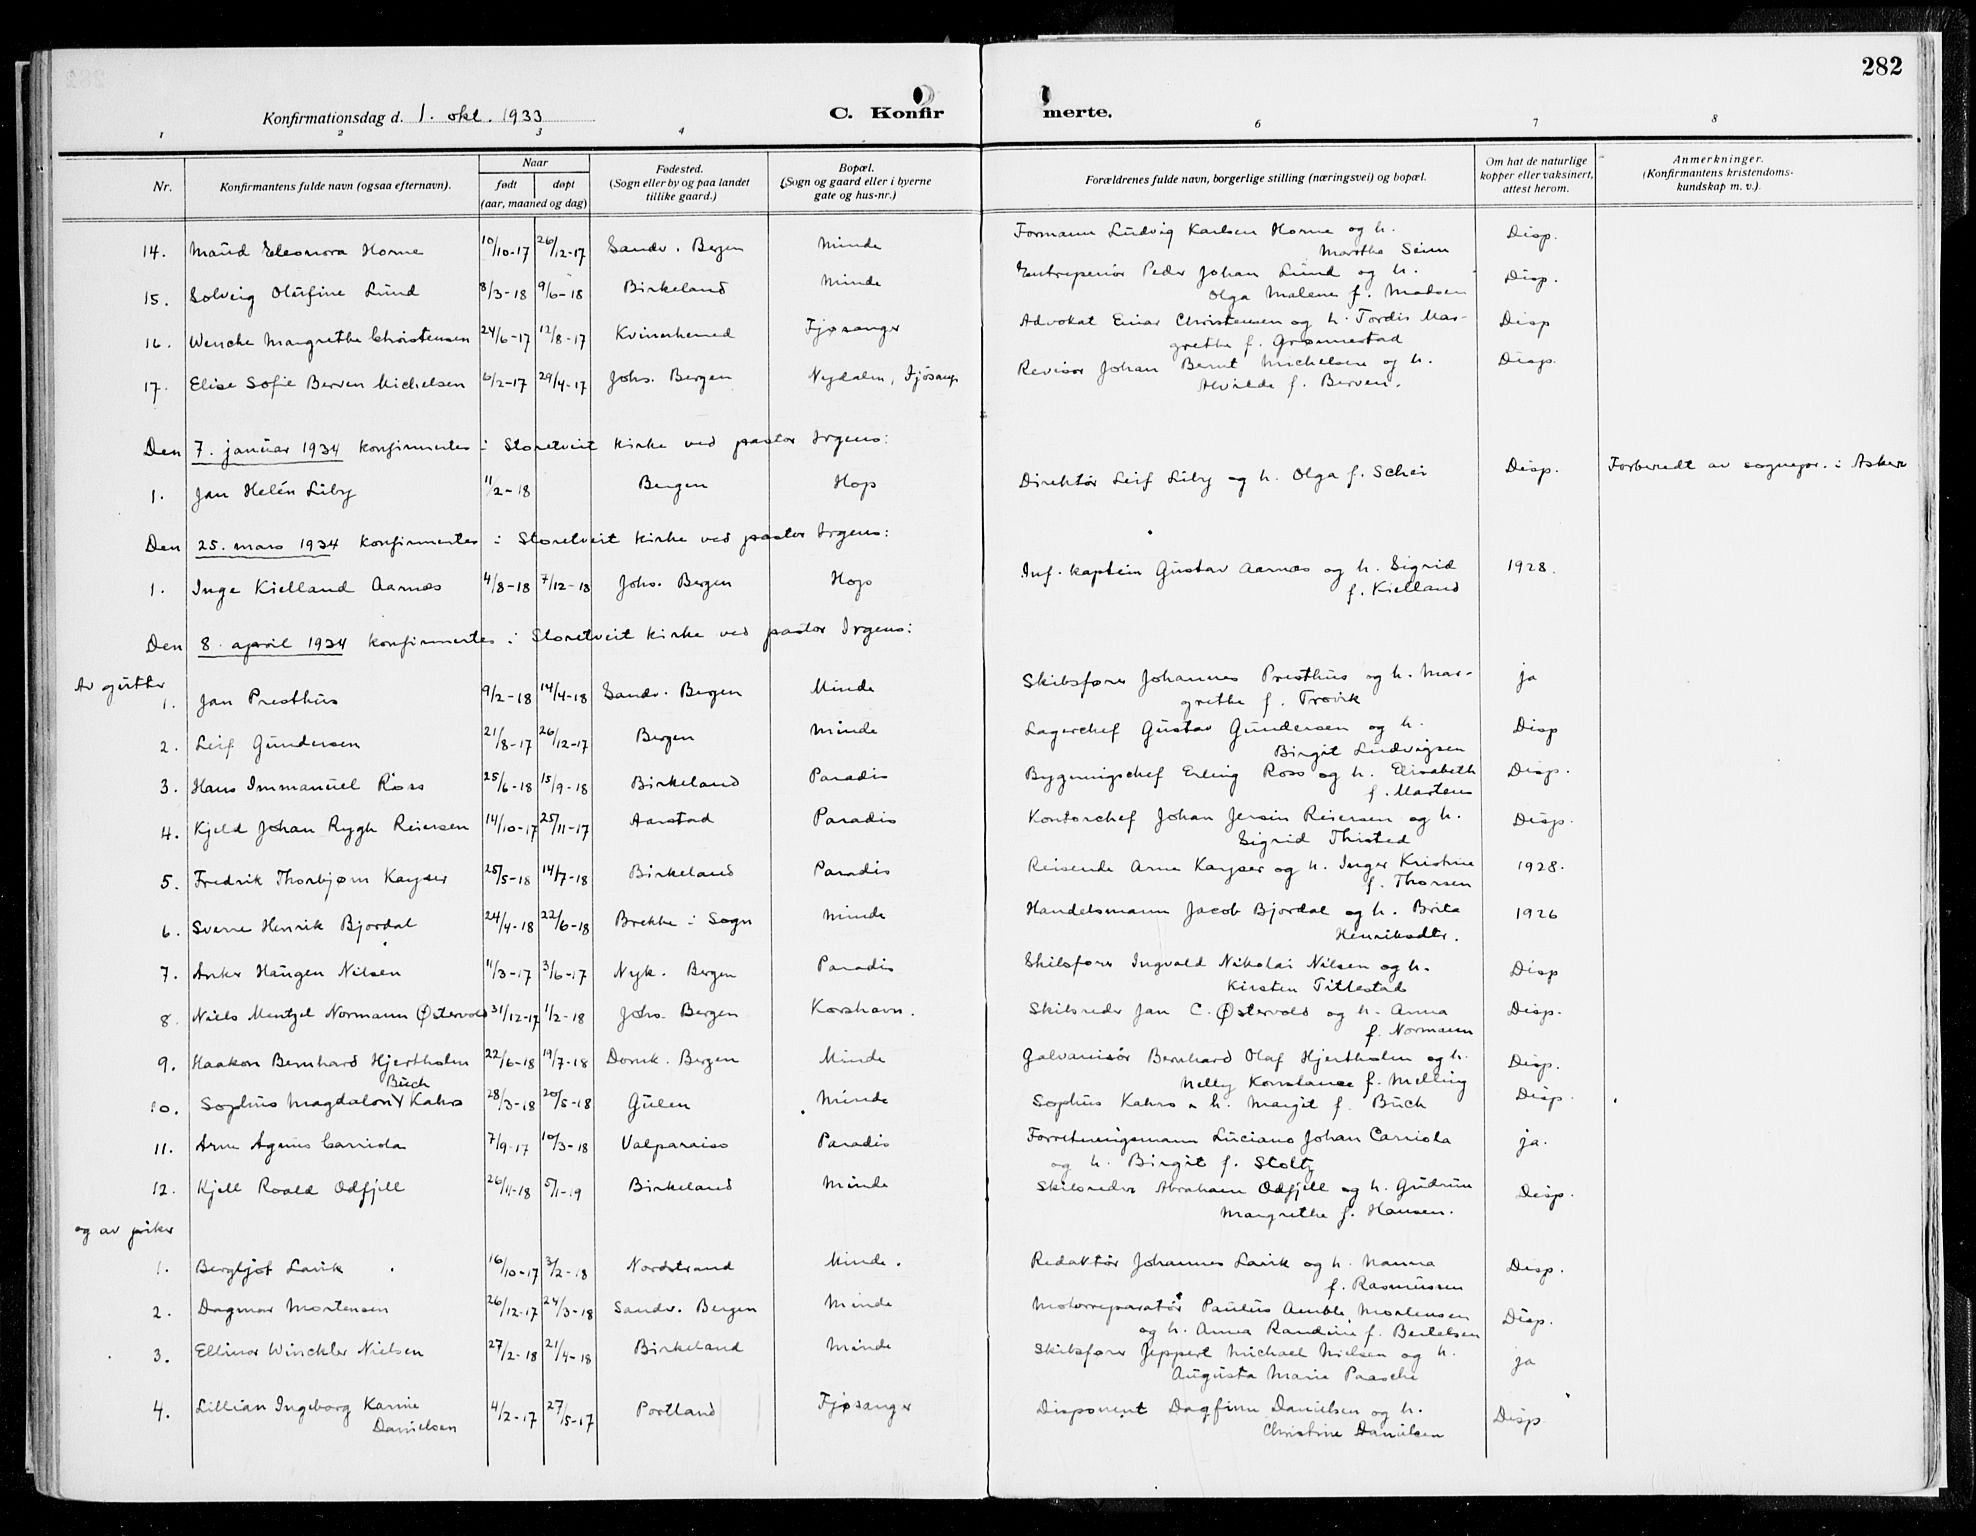 282
Konfirmationsdag d. 1. okt. 1933
C. Konfir merte.
1 2 3 4 6 7 8
Nr. Konfirmantens fulde navn (ogsaa efternavn). Naar født døpt (aar, maaned og dag) Fødested. (Sogn eller by og paa landet tillike gaard.) Bopæl. (Sogn og gaard eller i byerne gate og hus-nr.) Forældrenes fulde navn, borgerlige stilling (næringsvei) og bopæl. Om hat de naturlige kopper eller vaksinert, attest herom. Anmerkninger. (Konfirmantens kristendomskundskap m. v.).
14. Maud Eleonora Horne 10/10-17 26/12-17 Sandv. Bergen Minde Formann Ludvig Karlsen Horne og h. Disp.
Martha Seim
15. Solveig Olufine Lund 8/3-18 9/6-18 Birkeland Minde Entreprenör Peder Johan Lund og h. Disp.
Olga Malene f. Madsen
16. Wenche Margrethe Christensen 24/6-17 12/8-17 Kvinnherred Fjøsanger Advokat Einar Christensen og h. Tordis Mar- Disp
grethe f. Grønnestad
17. Elise Sofie Berven Michelsen 6/2-17 29/4-17 Johs. Bergen Nydalen, Fjøsang. Revisor Johan Bernt Michelsen og h. Disp.
Alvilde f. Berven.
Den 7. januar 1934 konfirmertes i Storetveit kirke ved pastor Irgens:
1. Jan Helén Liby 11/2-18 Bergen Hop Direktör Leif Liby og h. Olga f. Schei Disp. Forberedt av sognepr. i Asker
Den 25. mars 1934 konfirmertes i Storetveit kirke ved pastor Irgens:
1. Inge Kielland Aarnæs 4/8-18 7/12-18 Johs. Bergen Hop Inf. kaptein Gustav Aarnæs og h. Sigrid 1928.
f. Kielland
Den 8. april 1934 konfirmertes i Storetveit kirke ved pastor Irgens:
Av gutter
1. Jan Presthus 9/2-18 14/4-18 Sandv. Bergen Minde Skibsfører Johannes Presthus og h. Mar- ja
grethe f. Trovik
2. Leif Gundersen 21/8-17 26/12-17 Bergen Minde Lagerchef Gustav Gundersen og h. Disp
Birgit Ludvigsen
3. Hans Immanuel Ross 25/6-18 15/9-18 Birkeland Paradis Bygningschef Erling Ross og h. Elisabeth Disp.
f. Martens
4. Kjeld Johan Rygh Reiersen 14/10-17 25/11-17 Aarstad Paradis Kontorchef Johan Jersin Reiersen og h. Disp.
Sigrid Thisted
5. Fredrik Thorbjørn Kayser 25/5-18 14/7-18 Birkeland Paradis Reisende Arne Kayser og h. Inger Kristine 1928.
f. Thorsen
6. Sverre Henrik Bjordal 24/4-18 22/6-18 Brekke i Sogn Minde Handelsmann Jacob Bjordal og h. Brita 1926
Henriksdtr.
7. Anker Haugen Nilsen 11/3-17 3/6-17 Nyk. Bergen Paradis Skibsfører Ingvald Nikolai Nilsen og h. Disp
Kirsten Tittestad
8. Niels Mentzel Normann Østervold 31/12-17 1/2-18 Johs. Bergen Korshavn. Skibsreder Jan C. Østervold og h. Anna Disp.
f. Normann
9. Haakon Bernhard Hjertholm 22/6-18 19/7-18 Domk. Bergen Minde Galvanisör Bernhard Olaf Hjertholm og h. Disp.
Nelly Konstance f. Melling
Buch
10. Sophus Magdalon Kahrs 28/3-18 20/5-18 Gulen Minde Sophus Kahrs & h. Margit f. Buch Disp.
11. Arne Agenis Carriola 7/9-17 10/3-18 Valparaiso Paradis Forretningsmann Luciano Johan Carriola ja.
og h. Birgit f. Stoltz
12. Kjell Roald Odfjell 26/11-18 5/1-19 Birkeland Minde Skibsreder Abraham Odfjell og h. Gudrun Disp.
Margrethe f. Hansen.
og av piker
1. Bergljot Lavik 16/10-17 3/2-18 Nordstrand Minde. Redaktør Johannes Lavik og h. Nanna Disp.
f. Rasmussen
2. Dagmar Mortensen 26/12-17 24/3-18 Sandv. Bergen Minde Motorreparatør Paulus Amble Mortensen Disp.
og h. Anna Randine f. Bertelsen
3. Ellinor Winckler Nielsen 27/2-18 21/4-18 Birkeland Minde Skibsfører Jeppert Michael Nielsen og h. ja
Augusta Marie Paasche
4. Lillian Ingeborg Karine 4/2-17 27/5-17 Portland Fjøsanger Disponent Dagfinn Danielsen og h. Disp
Danielsen Christine Danielsen